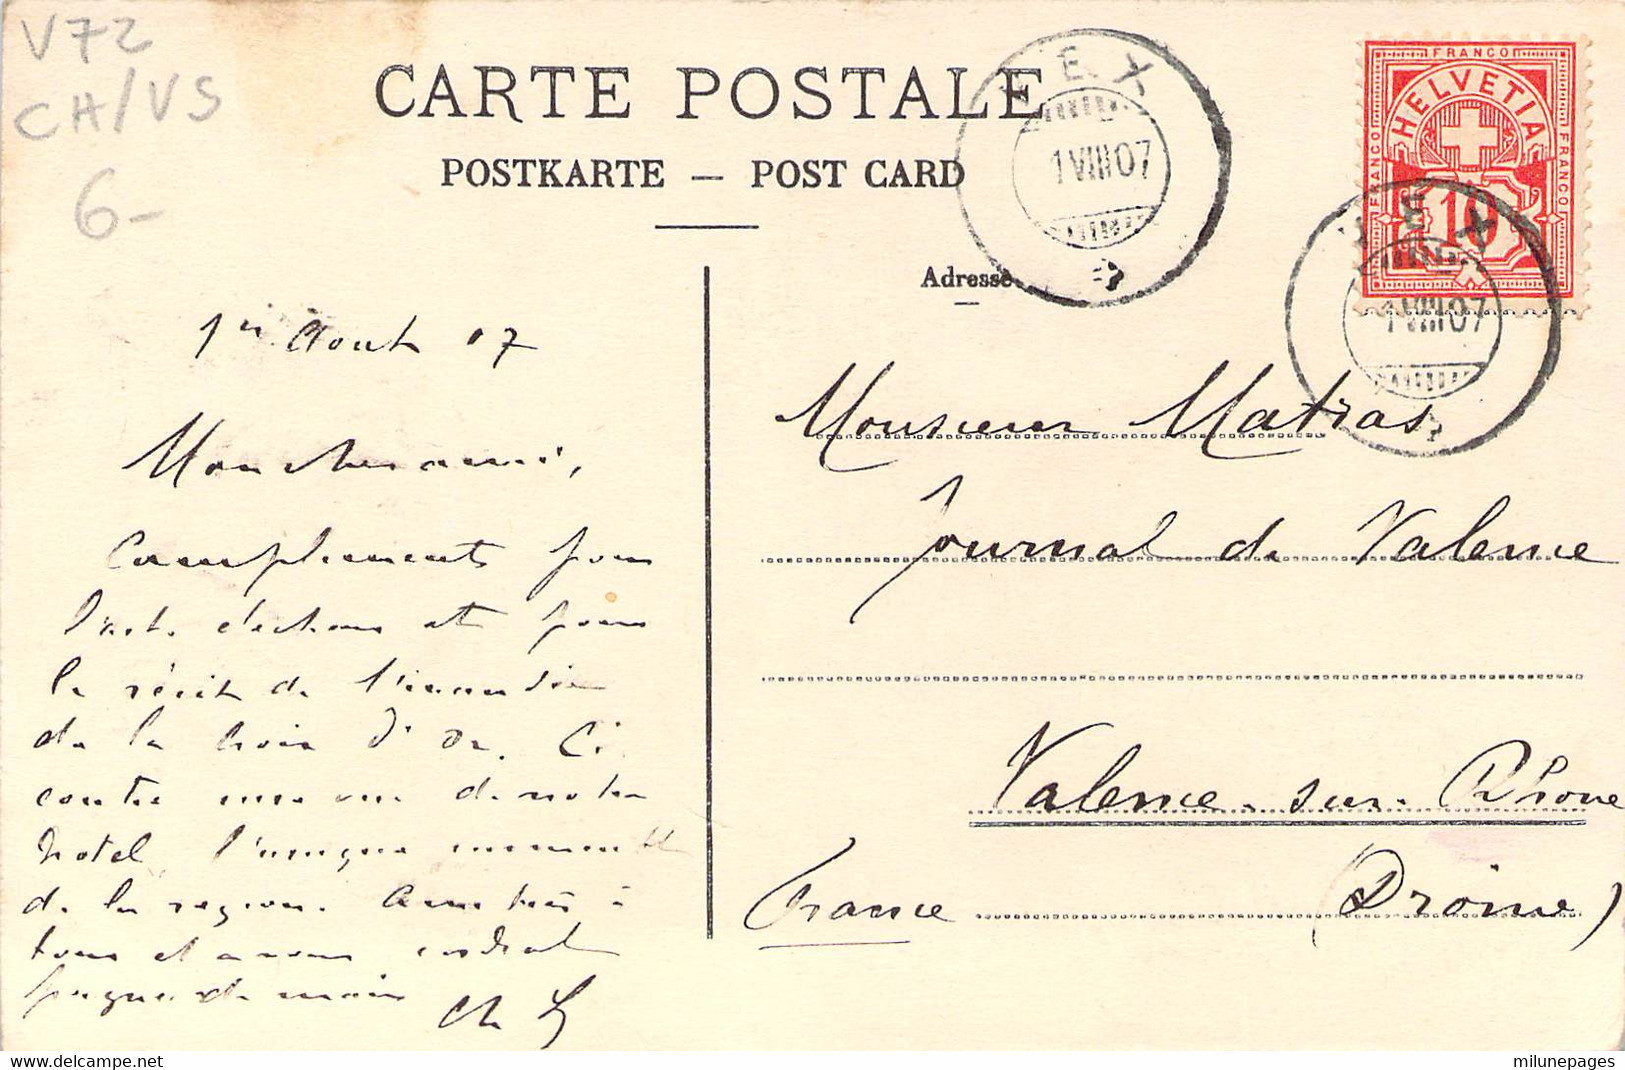 V72
CH/VS
6-
CARTE POSTALE
POSTKARTE — POST CARD
Adresse
VEX
1 VIII 07
FRANCO
HELVETIA
FRANCO
FRANCO
10
VEX
1 VIII 07
1er Aout 07
Mon cher ami,
Compliments pour
élections et pour
le récit de l'incendie
de la Croix d'Or. Ci
contre une vue de notre
hotel, l'unique
de la région. Amitiés à
tous et à vous cordial
poignée de main
Ch
Monsieur Matras
Journal de Valence
Valence-sur-Rhône
France (Drôme)
milunepages